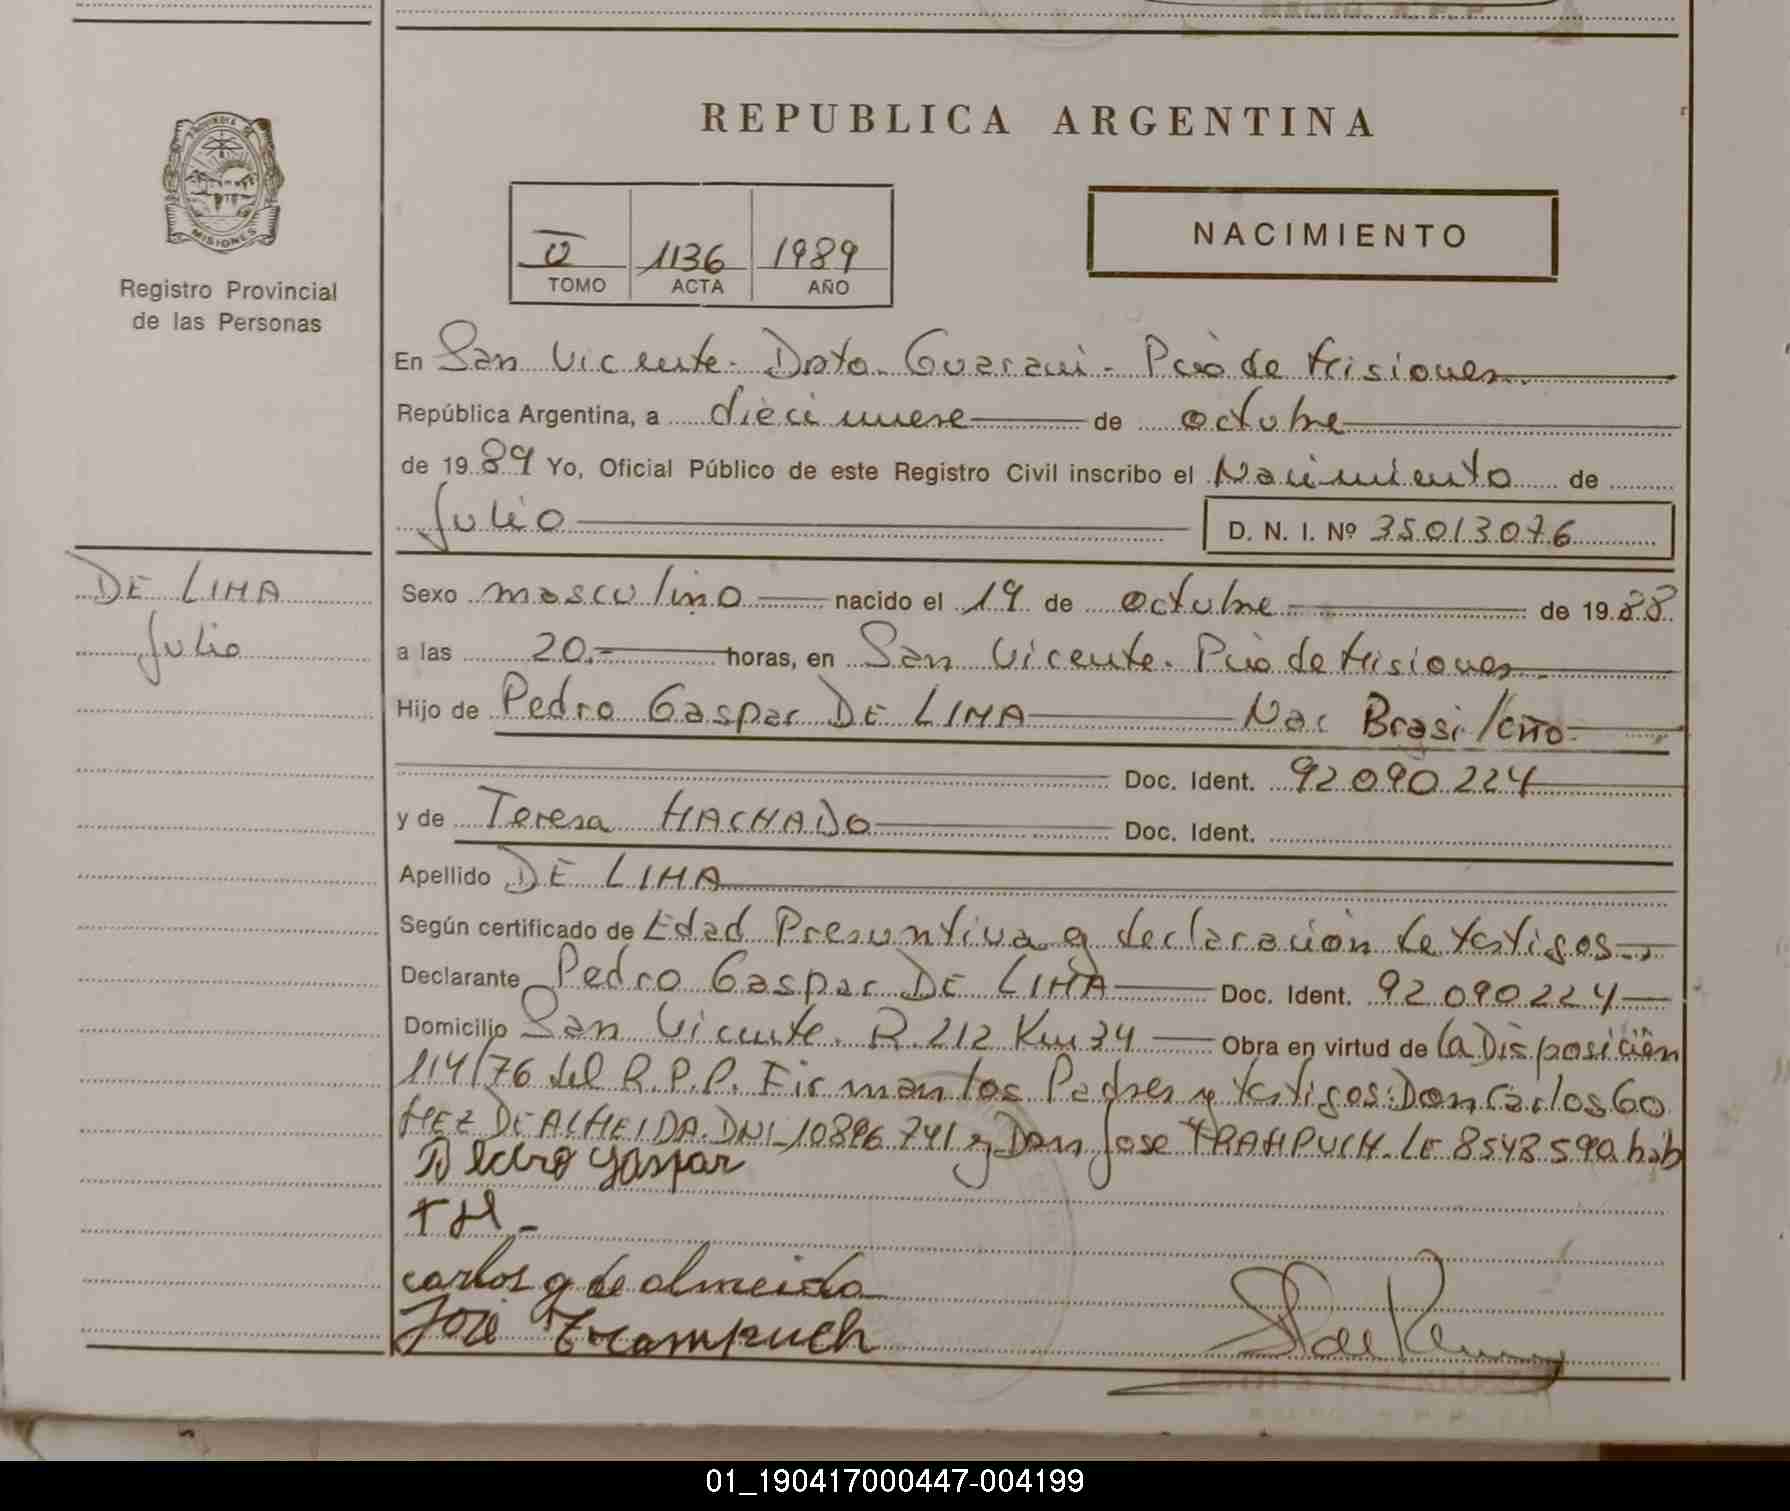 REPUBLICA ARGENTINA
PROVINCIA DE
MISIONES
Registro Provincial
de las Personas
1136 1989
TOMO ACTA AÑO
NACIMIENTO
En San Vicente - Dpto. Guarani - Pcia de Misiones
República Argentina, a diecinueve de octubre
de 1989 Yo, Oficial Público de este Registro Civil inscribo el Nacimiento de
Julio D. N. I. Nº 35013076
DE LIMA
Julio
Sexo masculino nacido el 19 de octubre de 1988
a las 20.- horas, en San Vicente. Pcia de Misiones
Hijo de Pedro Gaspar DE LIMA Nac Brasileño
Doc. Ident. 92 090 224
y de Teresa MACHADO Doc. Ident.
Apellido DE LIMA
Según certificado de Edad Presuntiva y declaración de testigos
Declarante Pedro Gaspar DE LIMA Doc. Ident. 92 090 224
Domicilio San Vicente. R. 212 Km 34 Obra en virtud de la Disposición
114/76 del R.P.P. Firman los Padres y testigos: Don Carlos GO
MEZ DE ALMEIDA. DNI 10896 741 y Don Jose TRAMPUCH. LE 8548590 háb
Pedro Gaspar
TM -
carlos g de almeida
José Trampuch
01_190417000447-004199